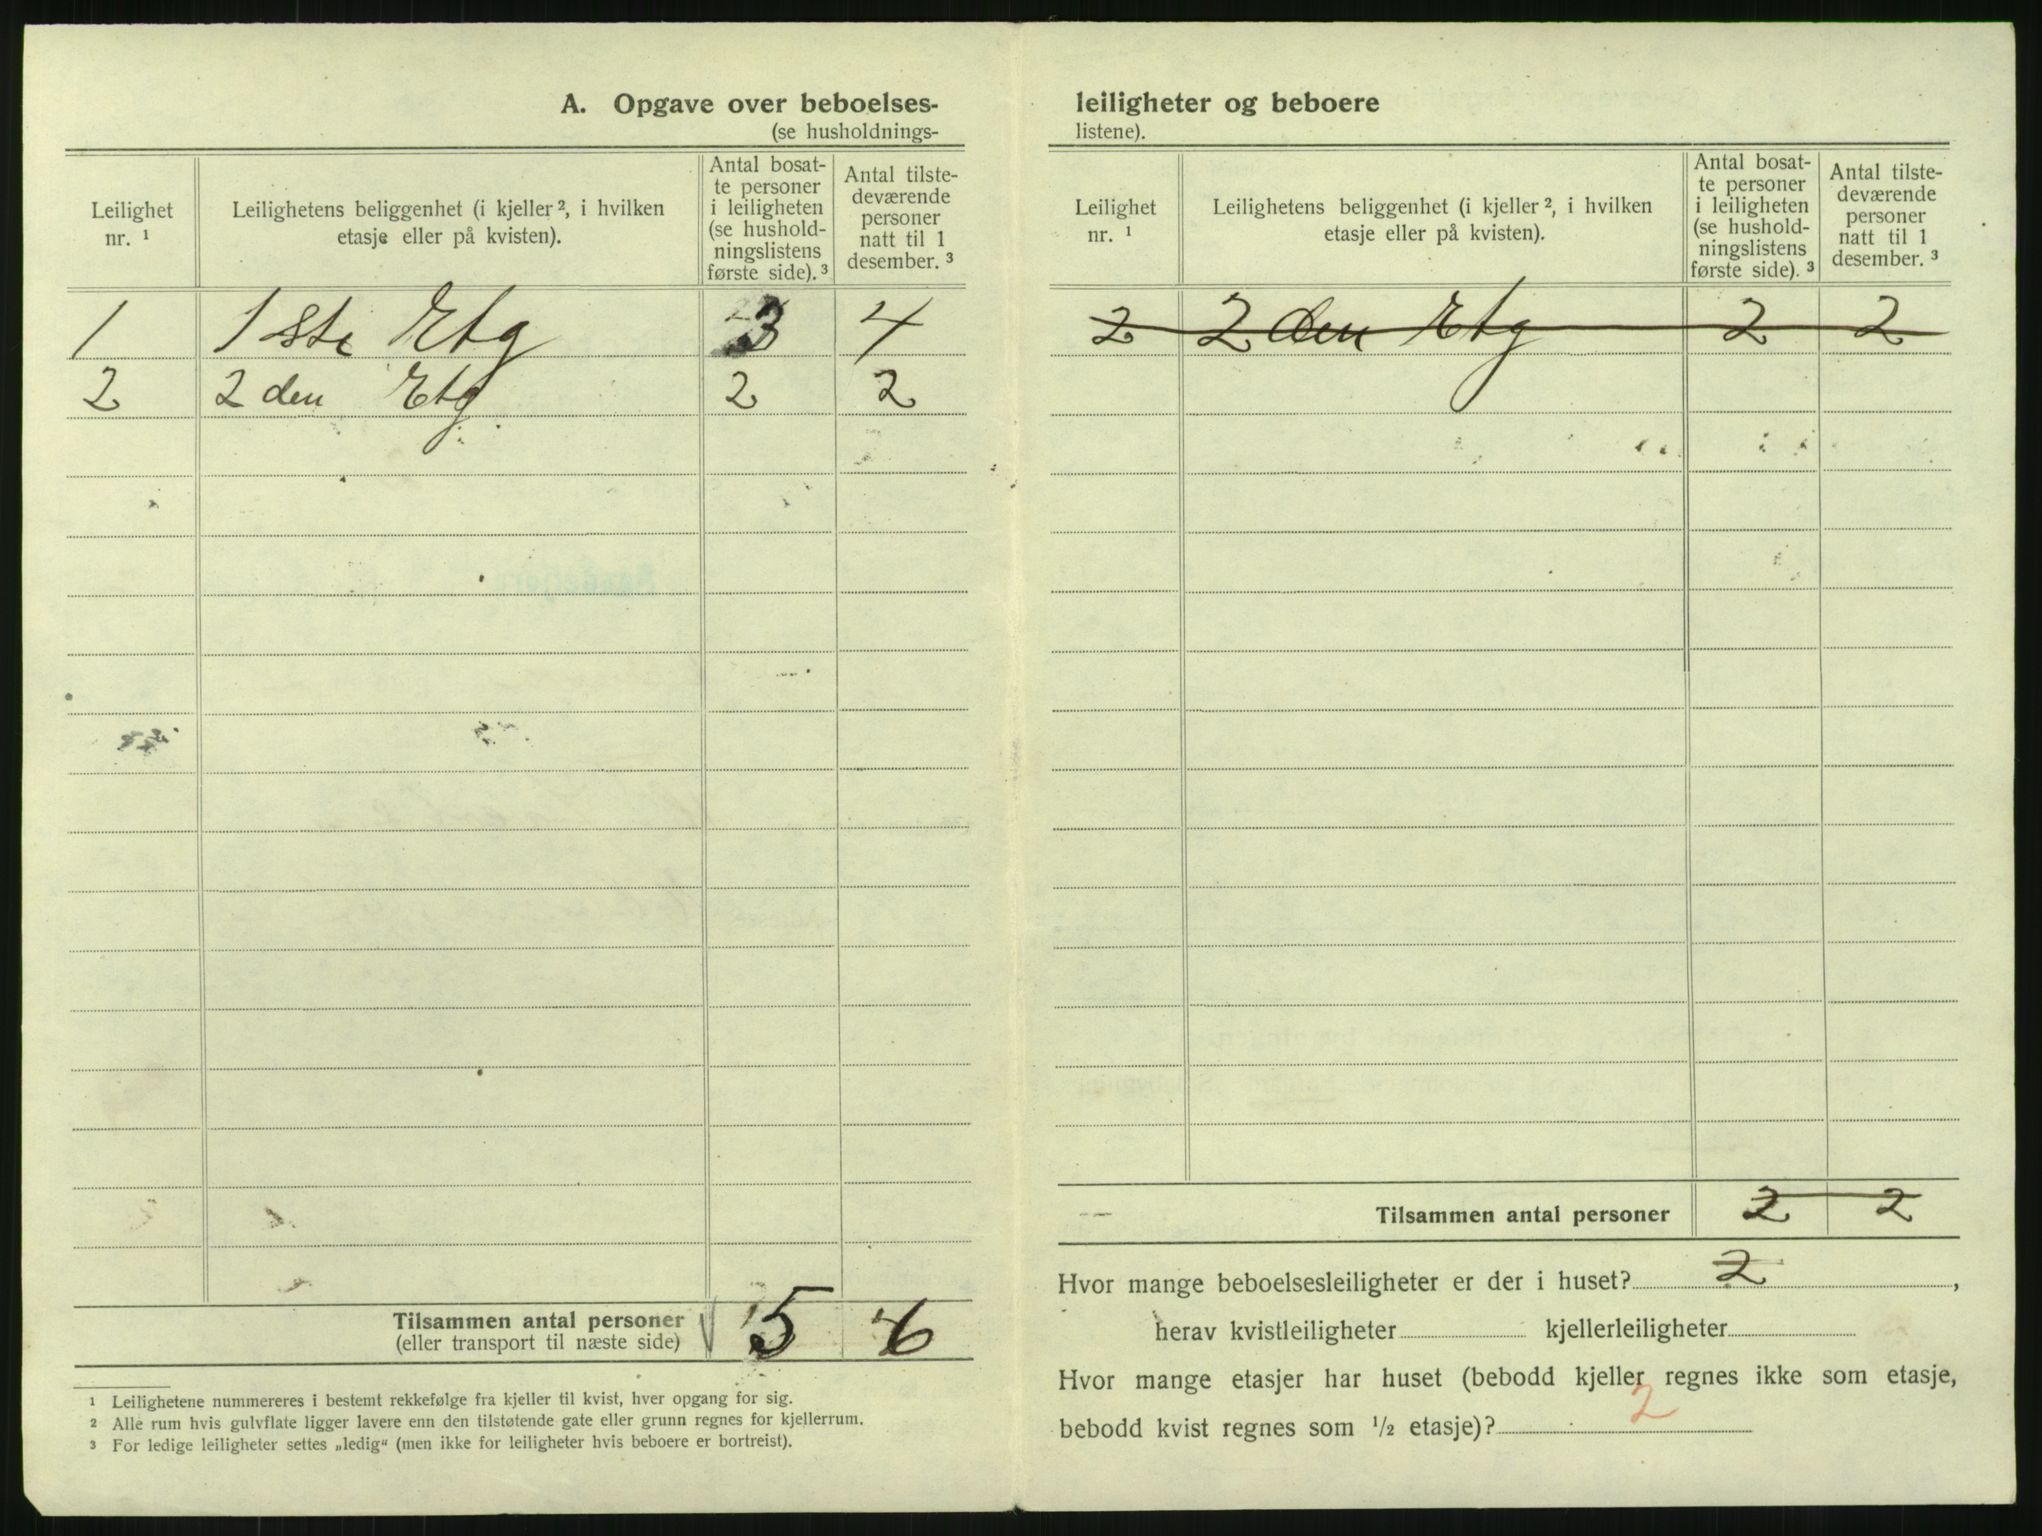 A. Opgave over beboelses-
(se husholdnings-
Leilighet nr. 1
Leilighetens beliggenhet (i kjeller 2, i hvilken etasje eller på kvisten).
Antal bosat-
te personer
i leiligheten
(se hushold-
ningslistens
første side). 3
Antal tilste-
deværende
personer
natt til 1
desember. 3
1 1ste Etg 3 4
2 2den Etg 2 2
Tilsammen antal personer 5 6
(eller transport til næste side)
1 Leilighetene nummereres i bestemt rekkefølge fra kjeller til kvist, hver opgang for sig.
2 Alle rum hvis gulvflate ligger lavere enn den tilstøtende gate eller grunn regnes for kjellerrum.
3 For ledige leiligheter settes „ledig“ (men ikke for leiligheter hvis beboere er bortreist).
leiligheter og beboere
listene).
Leilighet nr. 1
Leilighetens beliggenhet (i kjeller 2, i hvilken etasje eller på kvisten).
Antal bosat-
te personer
i leiligheten
(se hushold-
ningslistens
første side). 3
Antal tilste-
deværende
personer
natt til 1
desember. 3
2 2 den Etg 2 2
Tilsammen antal personer 2 2
Hvor mange beboelsesleiligheter er der i huset? 2,
herav kvistleiligheter kjellerleiligheter
Hvor mange etasjer har huset (bebodd kjeller regnes ikke som etasje,
bebodd kvist regnes som 1/2 etasje)? 2